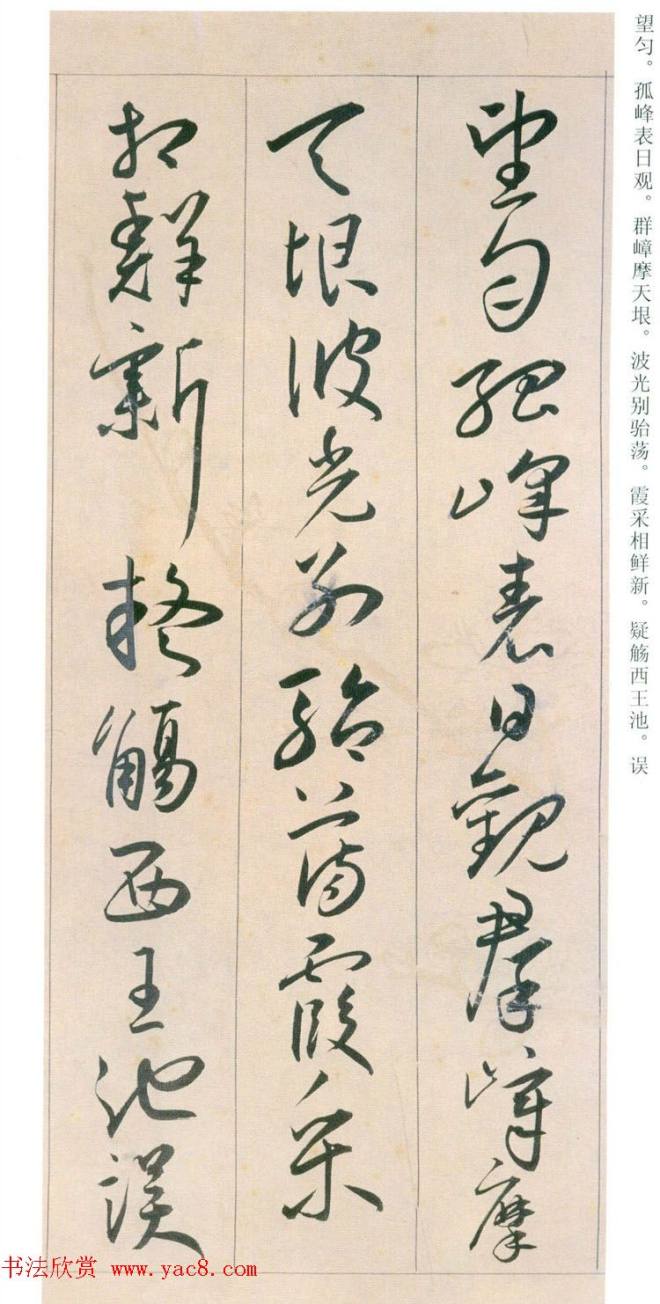 望匀。孤峰表日观。群嶂摩天垠。波光别骀荡。霞采相鲜新。疑觞西王池。误
望匀孤峰表日觀群嶂摩
天垠波光别駘蕩霞采
相鲜新疑觴西王池误
书法欣赏 www.yac8.com